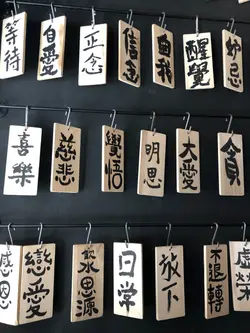 等待
自愛
正念
信念
自我
醒覺
妒忌
喜樂
慈悲
覺悟
明思
大愛
貪
感恩
戀愛
飲水思源
日常
放下
不退轉
虛榮